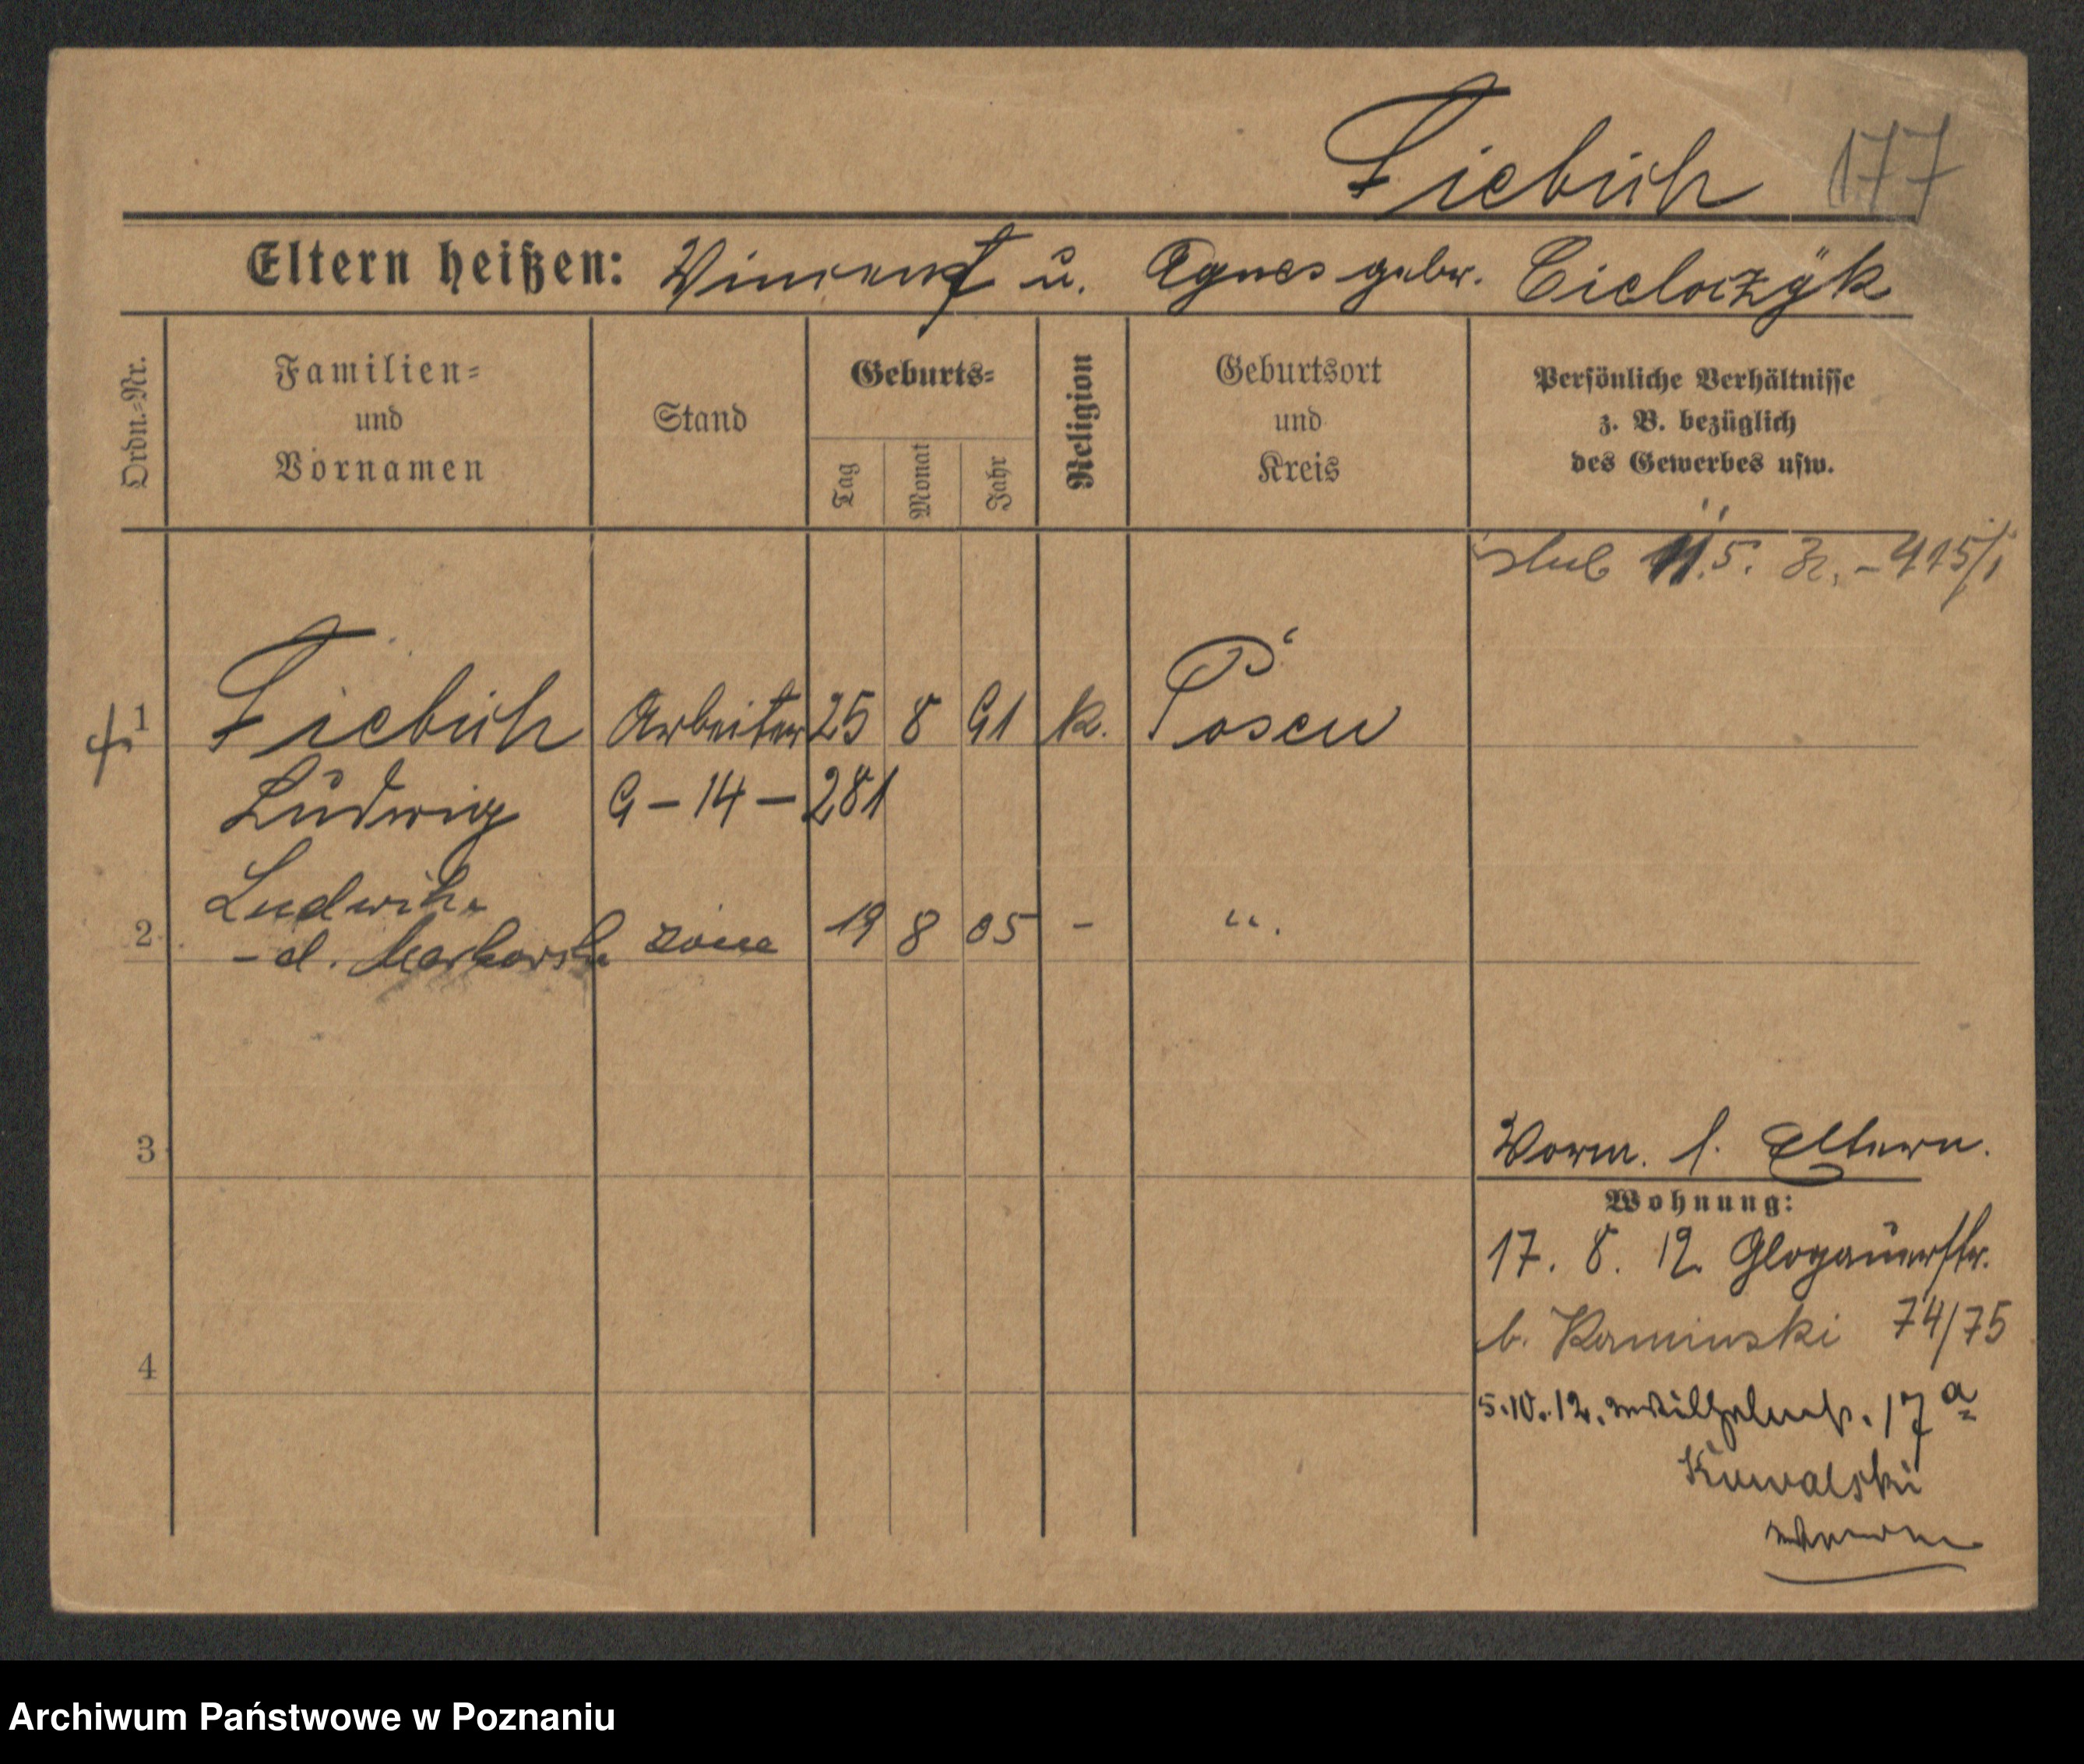 Fiebich 177
Eltern heißen: Vincent u. Agnes gebor.
Ordn.-Nr.
Familien-
und
Vornamen
Stand
Geburts-
Tag
Monat
Jahr
Religion
Geburtsort
und
Kreis
Persönliche Verhältnisse
z. B. bezüglich
des Gewerbes usw.
slub 11.5. – 415/I
1 Fiebich Arbeiter 25 8 91 k. Posen
Ludwig G – 14 – 281
Ludwika
2 – d. żona 19 8 05 – ".
3
Vorm. s. Eltern.
Wohnung:
17. 8. 12. Glogauerstr.
b. Kaminski 74/75
4
5.10.12. 17 a
Kuwalski
Archiwum Państwowe w Poznaniu